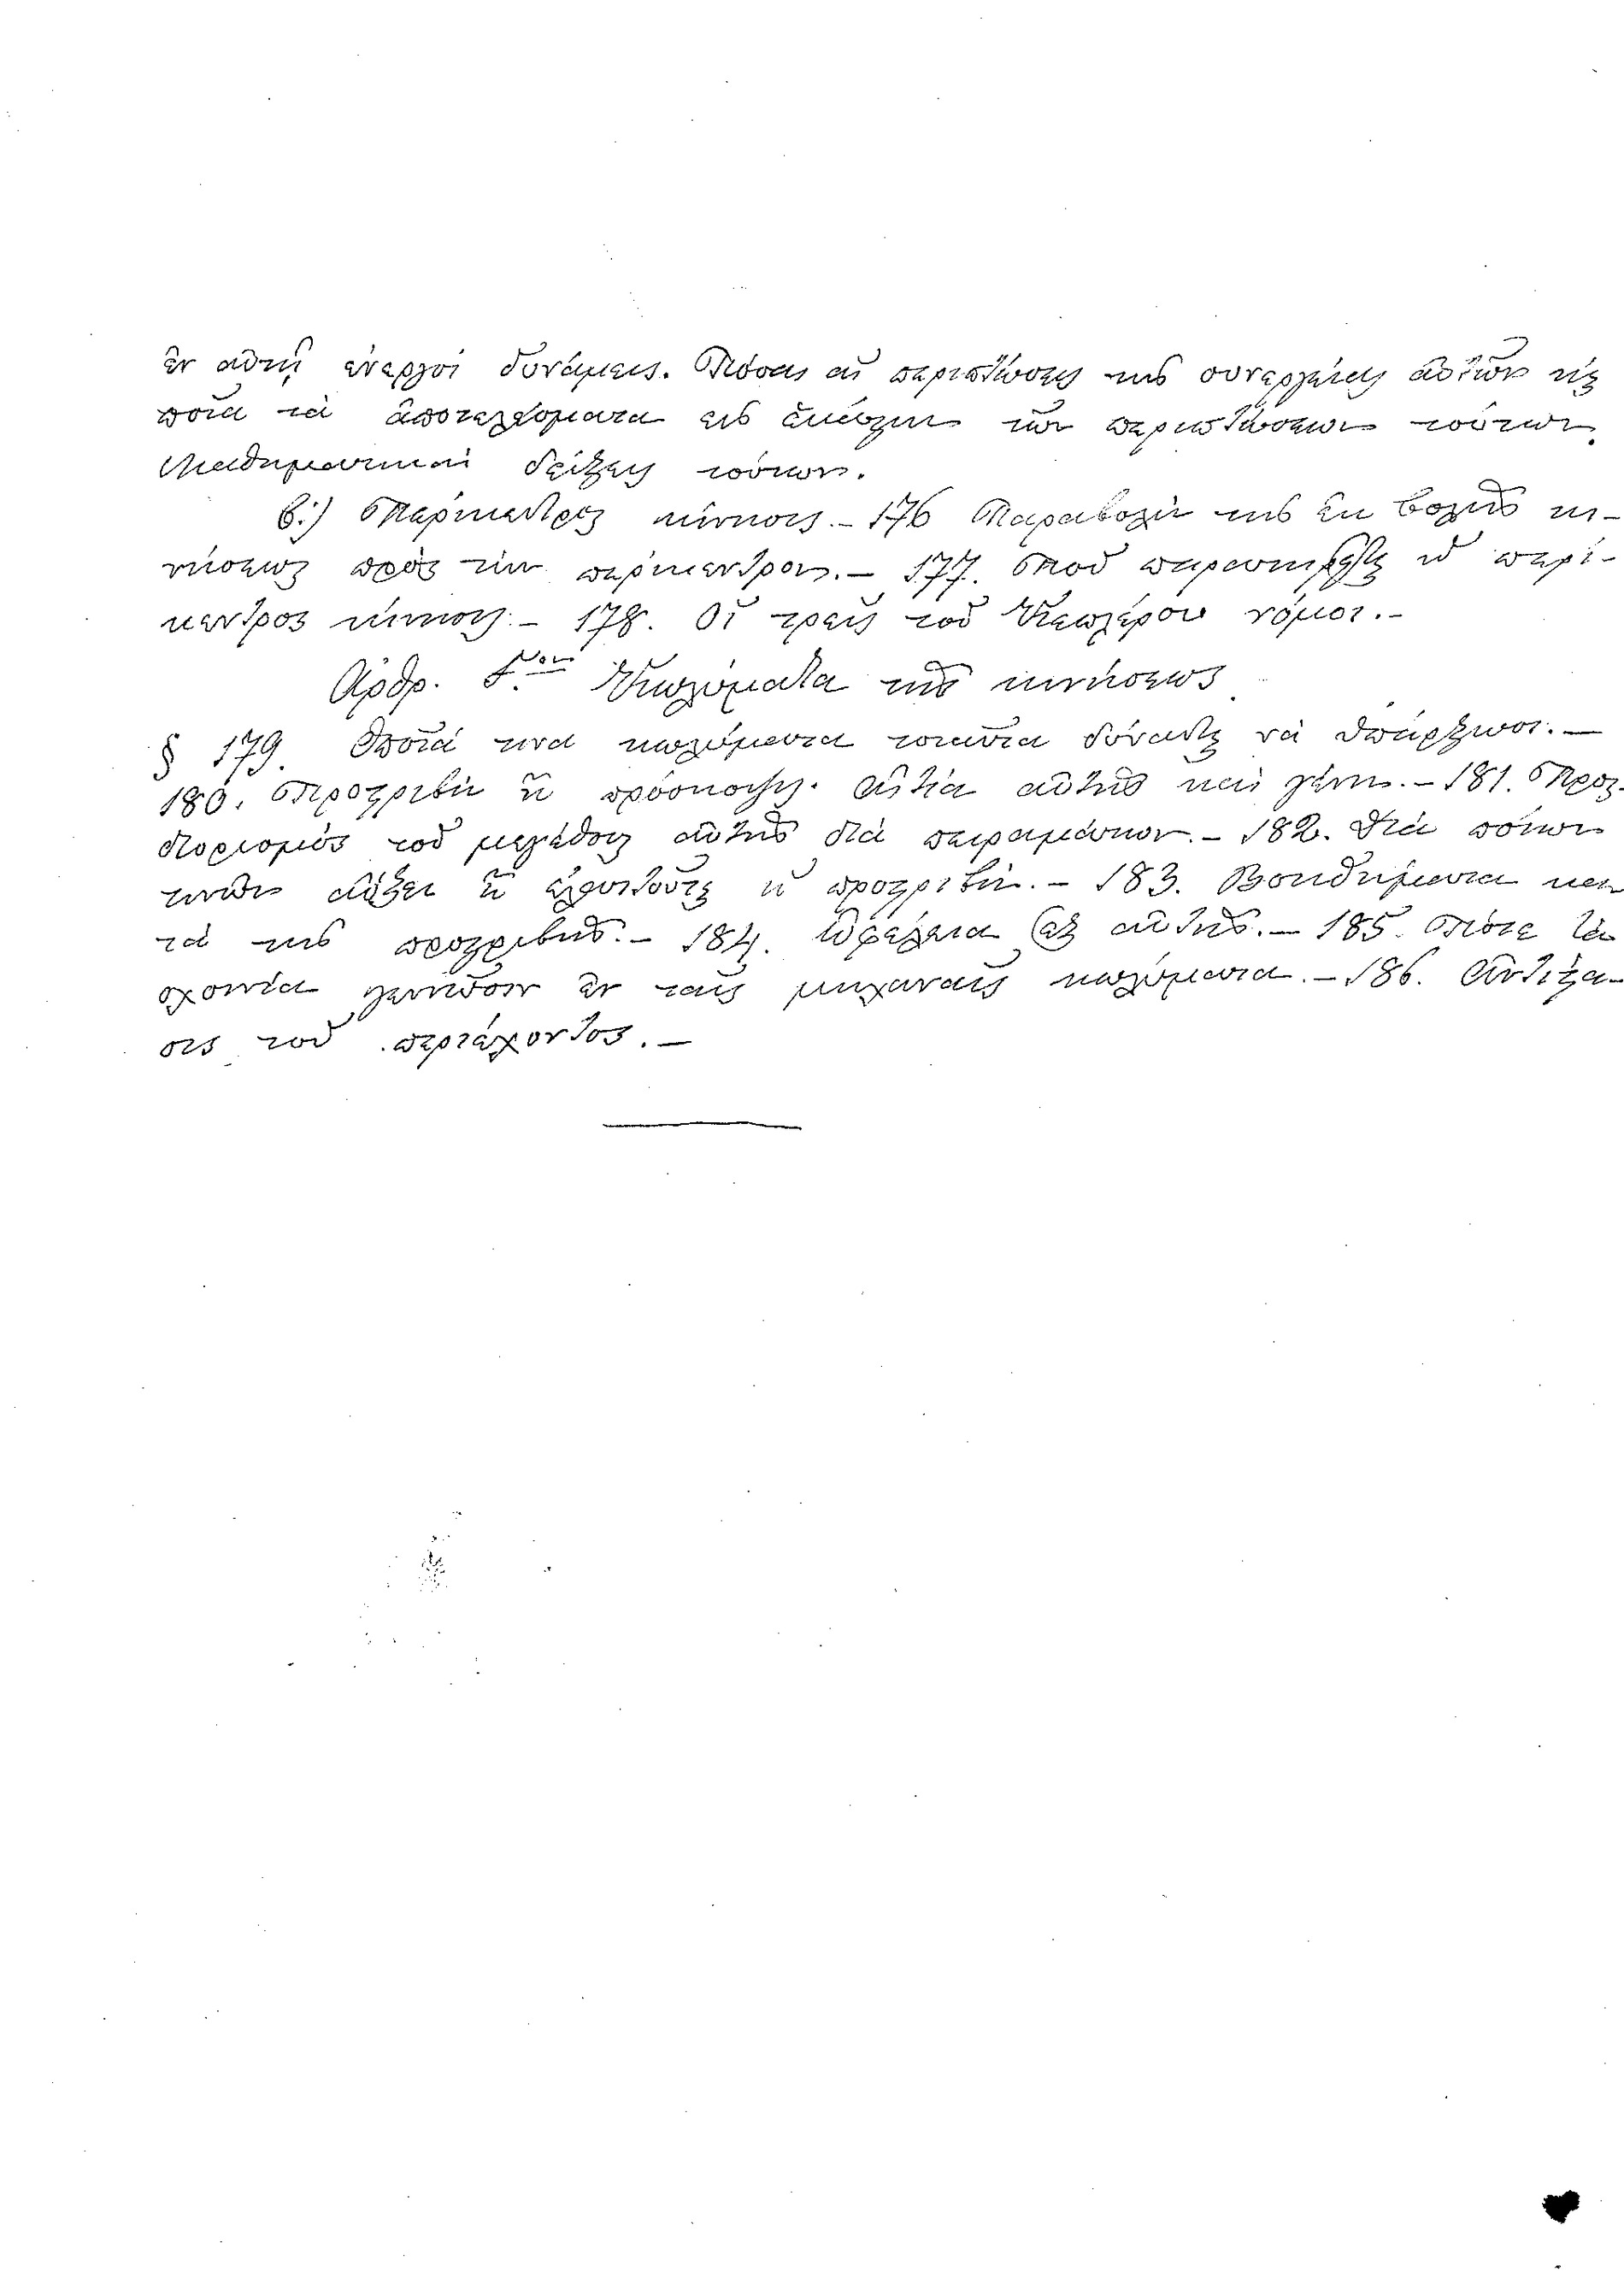 ἐν αὐτῇ ἐνεργοὶ δυνάμεις. Πόσαι αἱ περιπτώσεις τῆς συνεργείας αὐτῶν εἰς
ποῖα τὰ ἀποτελέσματα εἰς ἑκάστην τῶν περιπτώσεων τούτων.
Μαθηματικαὶ δείξεις τούτων.
β.) Περίκεντρος κίνησις. – 176 Παραβολὴ τῆς ἐκ βολῆς κι-
νήσεως πρὸς τὴν περίκεντρον. – 177. Ποῦ παρατηρεῖται ἡ περί-
κεντρος κίνησις. – 178. Οἱ τρεῖς τοῦ Κεπλέρου νόμοι. –
Ἄρθρ. 5.ον Κωλύματα τῆς κινήσεως
§ 179. Ποῖά τινα κωλύματα τοιαῦτα δύναται νὰ ὑπάρξωσι. –
180. Προστριβὴ ἢ πρόσκοψις. Αἰτία αὐτῆς καὶ γένη. – 181. Προσ-
διορισμὸς τοῦ μεγέθους αὐτῆς διὰ πειραμάτων. – 182. Διὰ πόσων
τινῶν αὔξει ἢ ἐλαττοῦται ἡ προστριβή. – 183. Βοηθήματα κα-
τὰ τῆς προστριβῆς. – 184. Ὠφέλεια ἐξ αὐτῆς. – 185. Πότε τὰ
σχοινία γεννῶσιν ἐν ταῖς μηχαναῖς κωλύματα. – 186. Ἀντίτα-
σις τοῦ περιέχοντος. –